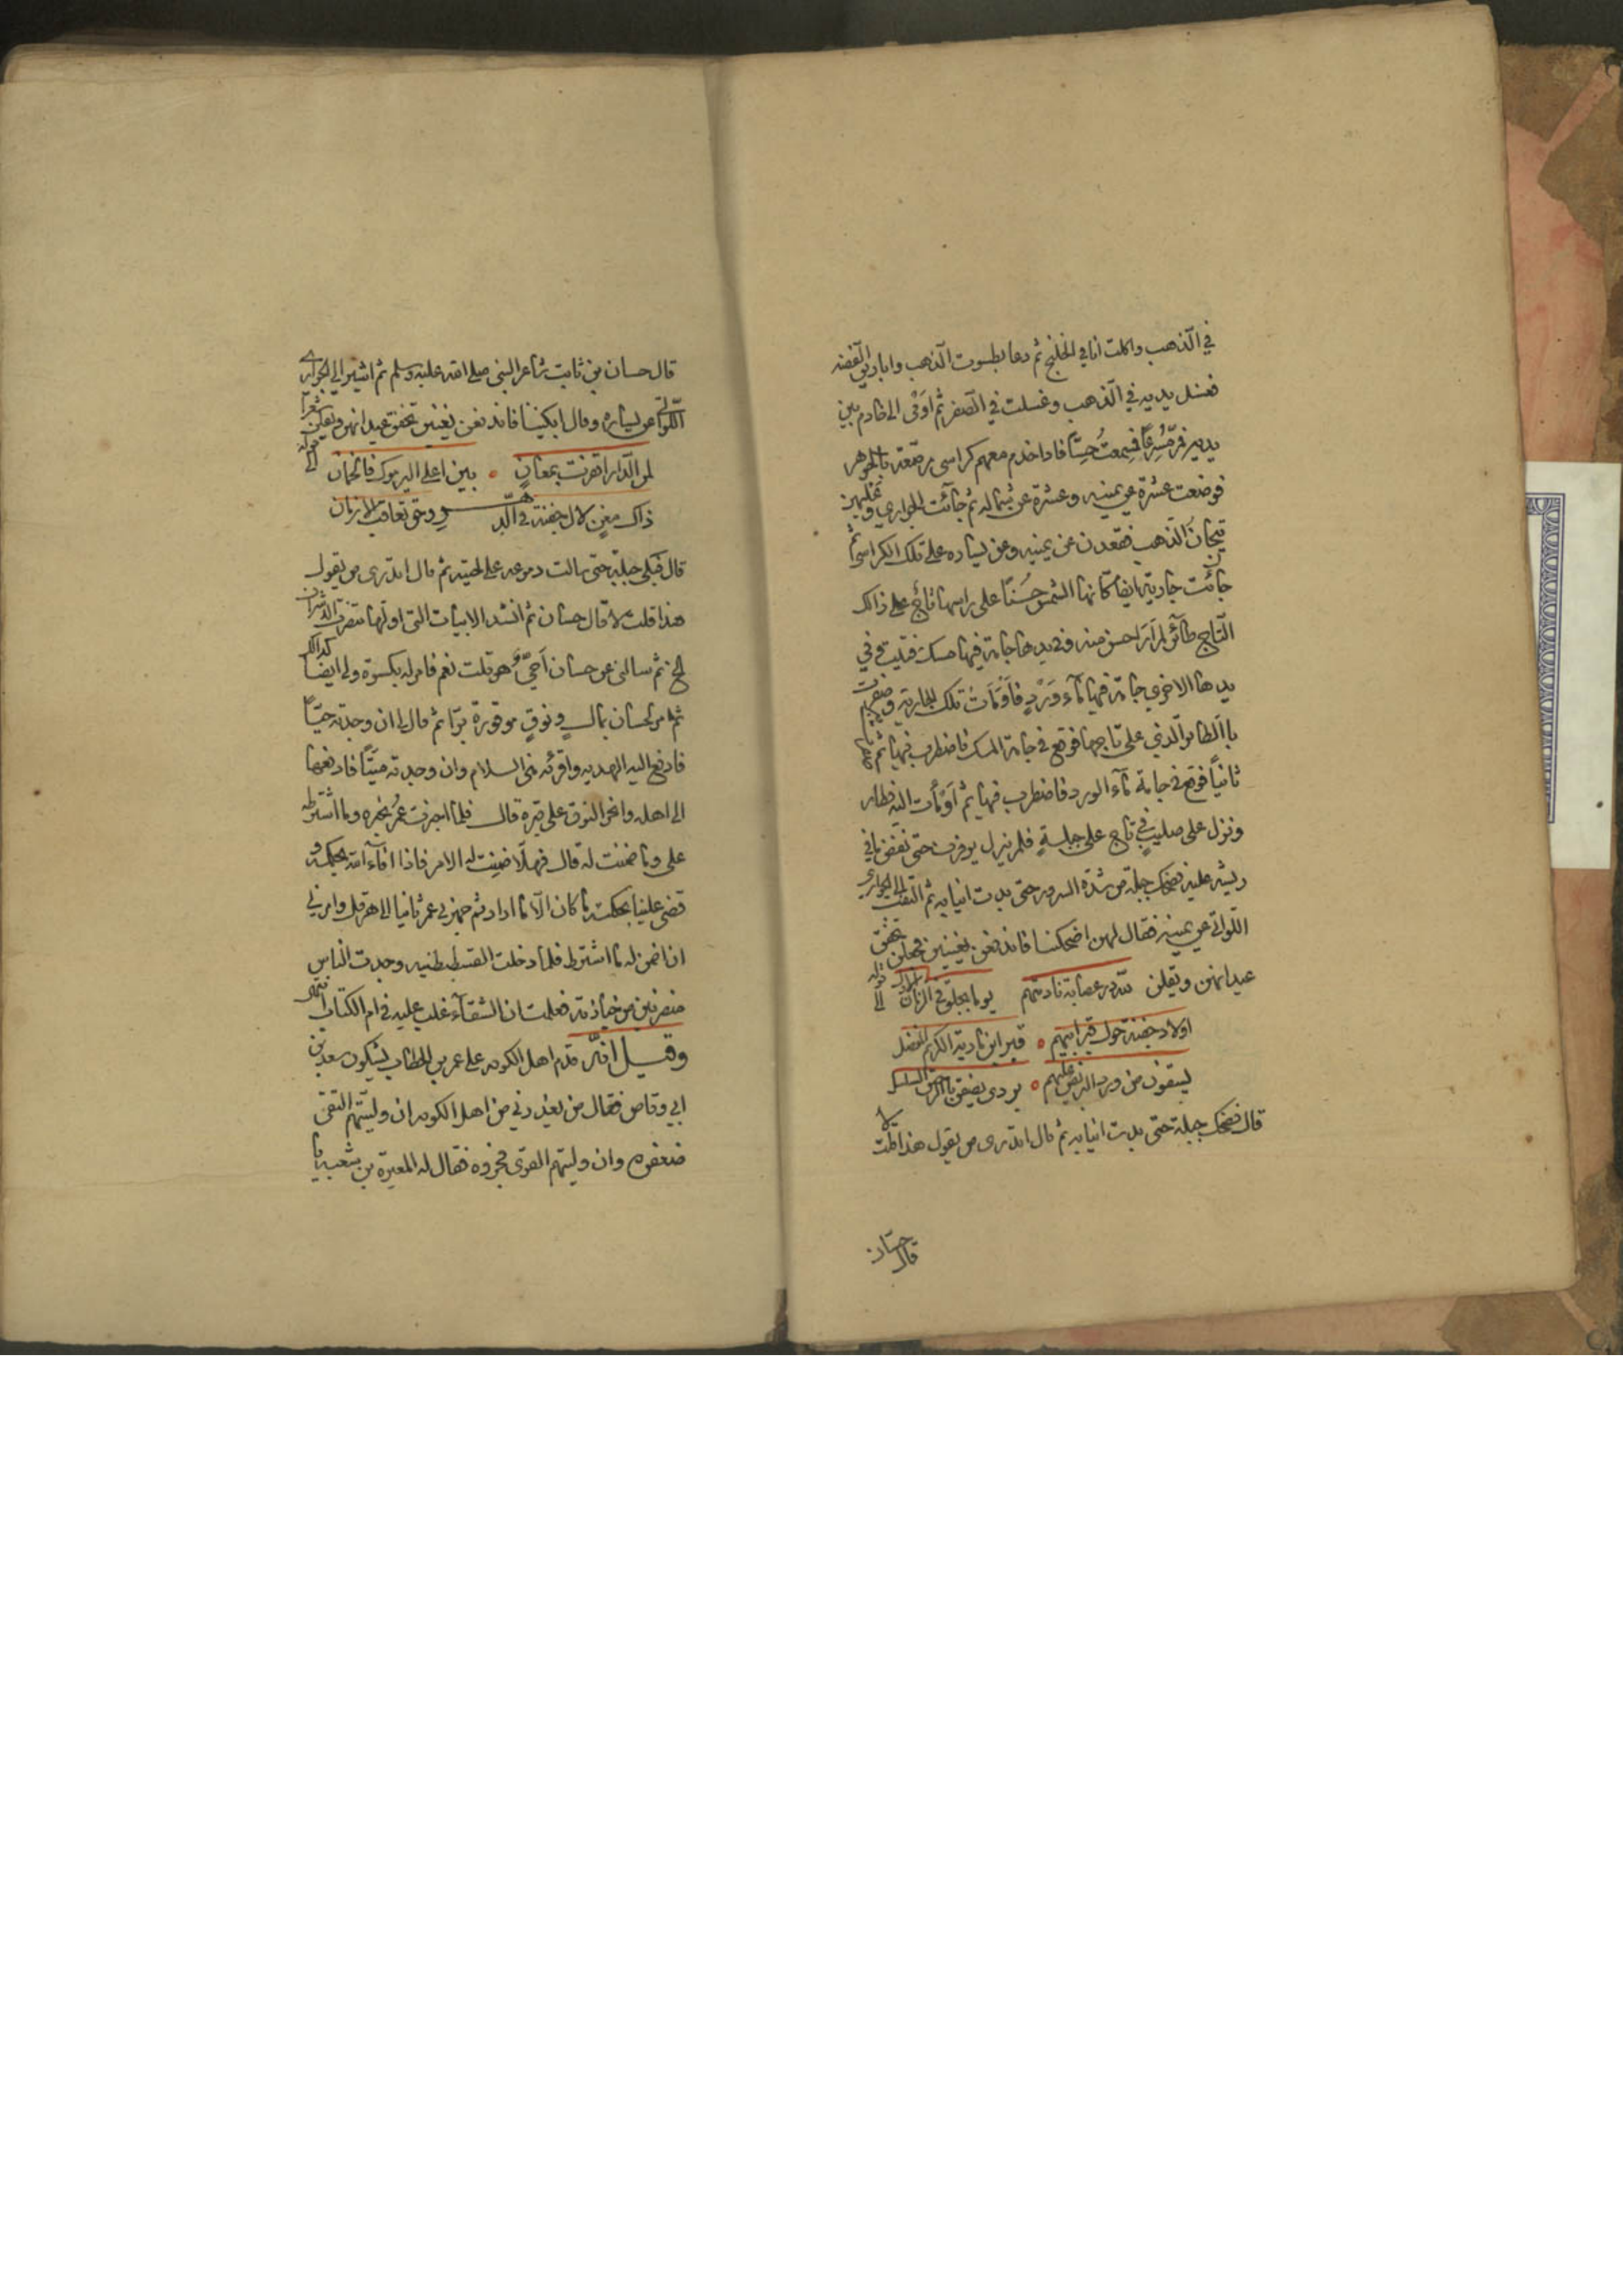 في الذهب واكلت انا في الخلنج ثم دعا بطسوت الذهب واباريق الفضه
فغسل يديه في الذهب وغسلت في الصفر ثم اومى الى خادم بين
يديه فمر مسرعا فسمعت حسا فاذا خدم معهم كراسى مرصعة بالجوهر
فوضعت عشرة عن يمينه وعشرة عن شماله ثم جآئت الجواري وعليهن
تيجان الذهب فقعدن عن يمينه وعن يساره على تلك الكراسي ثم
جائت جارية ايضا كانها الشمس حسنا على راسها تاج على ذالك
التاج طآئر لم ار احسن منه وفي يدها جامة فيها مسك فتيت وفي
يدها الاخرى جامة فيها مآء ورد فاومأت تلك الجارية وصفرت
با الطائر الذي على تاجها فوقع في جامة المسك فاضطرب فيها ثم
ثانيا فوقع في جامة مآء الورد فاضطرب فيها ثم اومأت اليه فطار
ونزل على صليب في تاج على جبلة فلم يزل يرفرف حتى نفض ما في
ريشه عليه فضحك جبلة من شدة السرور حتى بدت انيابه ثم التفت الى الجوارى
اللواتى عن يمينه فقال لهن اضحكننا فاندفعن يغنين تخفق
عيدانهن ويقلن لله در عصابة نادمتهم يوما بجلق في الزمان الاول قوله الى
اولاد جفنة حول قبر ابيهم ه قبر ابن مارية الكريم المفضل
يسقون من ورد البريص عليهم ه بردى يصفق با الرحيق السلسل
قال فضحك جبلة حتى بدت انيابه ثم قال اتدرى من يقول هذا قلت لا
قال حسان
قال حسان بن ثابت شاعر النبى صلى الله عليه وسلم ثم اشير الى الجوارى
اللواتى عن يساره وقال ابكيننا فاندفعن يغنين تخفق عيدانهن ويقلن شعرا
لمن الدار اقفرت بمعان ه بين اعلى اليرموك فالخمان قوله الى
ذاك مغنى لال جفنة في الدهـــر وحق تعاقب الازمان
قال فبكى جبلة حتى سالت دموعه على لحيته ثم قال اتدرى من يقول
هذا قلت لا قال حسان ثم انشد الابيات التى اولها تنصرت الاشراف
الخ ثم سالنى عن حسان احي هو قلت نعم فامر له بكسوة ولى ايضا كذالك
ثم امر لحسان بمال ونوق موقورة برا ثم قال لى ان وجدته حيا
فادفع اليه الهديه واقرئه منى السلام وان وجدته ميتا فادفعها
الى اهله وانحر النوق على قبره قال فلما اخبرت عمر بخبره وما اشترطه
على وما ضمنت له قال فهلا ضمنت له الامر فاذا افآء الله بحكمه و
قضى علينا بحكمته ما كان الا ما اراد ثم جهزني عمر ثانيا الى هرقل وامرني
ان اضمن له ما اشترط فلما دخلت القسطنطنيه وجدت الناس
منصرفين من جنازته فعلمت ان الشقآء غلب عليه في ام الكتاب انتهى
وقيل انه قدم اهل الكوفه على عمر بن الخطاب يشكون سعد بن
ابي وقاص فقال من يعذرني من اهل الكوفه ان وليتهم التقى
ضعفوه وان وليتهم القوى فجروه فقال له المغيرة بن شعبه يا